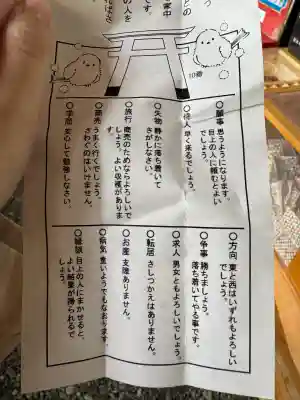 との
家中
の人を
です。
う。
10番
○願事 思うようになります。
目上の人に頼むとよい
でしょう。
○待人 早く来るでしょう。
○失物 静かに落ち着いて
さがしなさい。
○旅行 商売のためならよろしいで
しょう。よい収穫がありま
す。
○商売 うまく行くでしょう。
さわぐのはいけません。
○学問 安心して勉強しなさい。
○方向 東と西はいずれもよろしい
でしょう。
○争事 勝ちましょう。
落ち着いてやる事です。
○求人 男女ともよろしいでしょう。
○転居 さしつかえはありません。
○お産 支障ありません。
○病気 重いようでもなおります。
○縁談 目上の人にまかせると、
よい結果が得られるで
しょう。